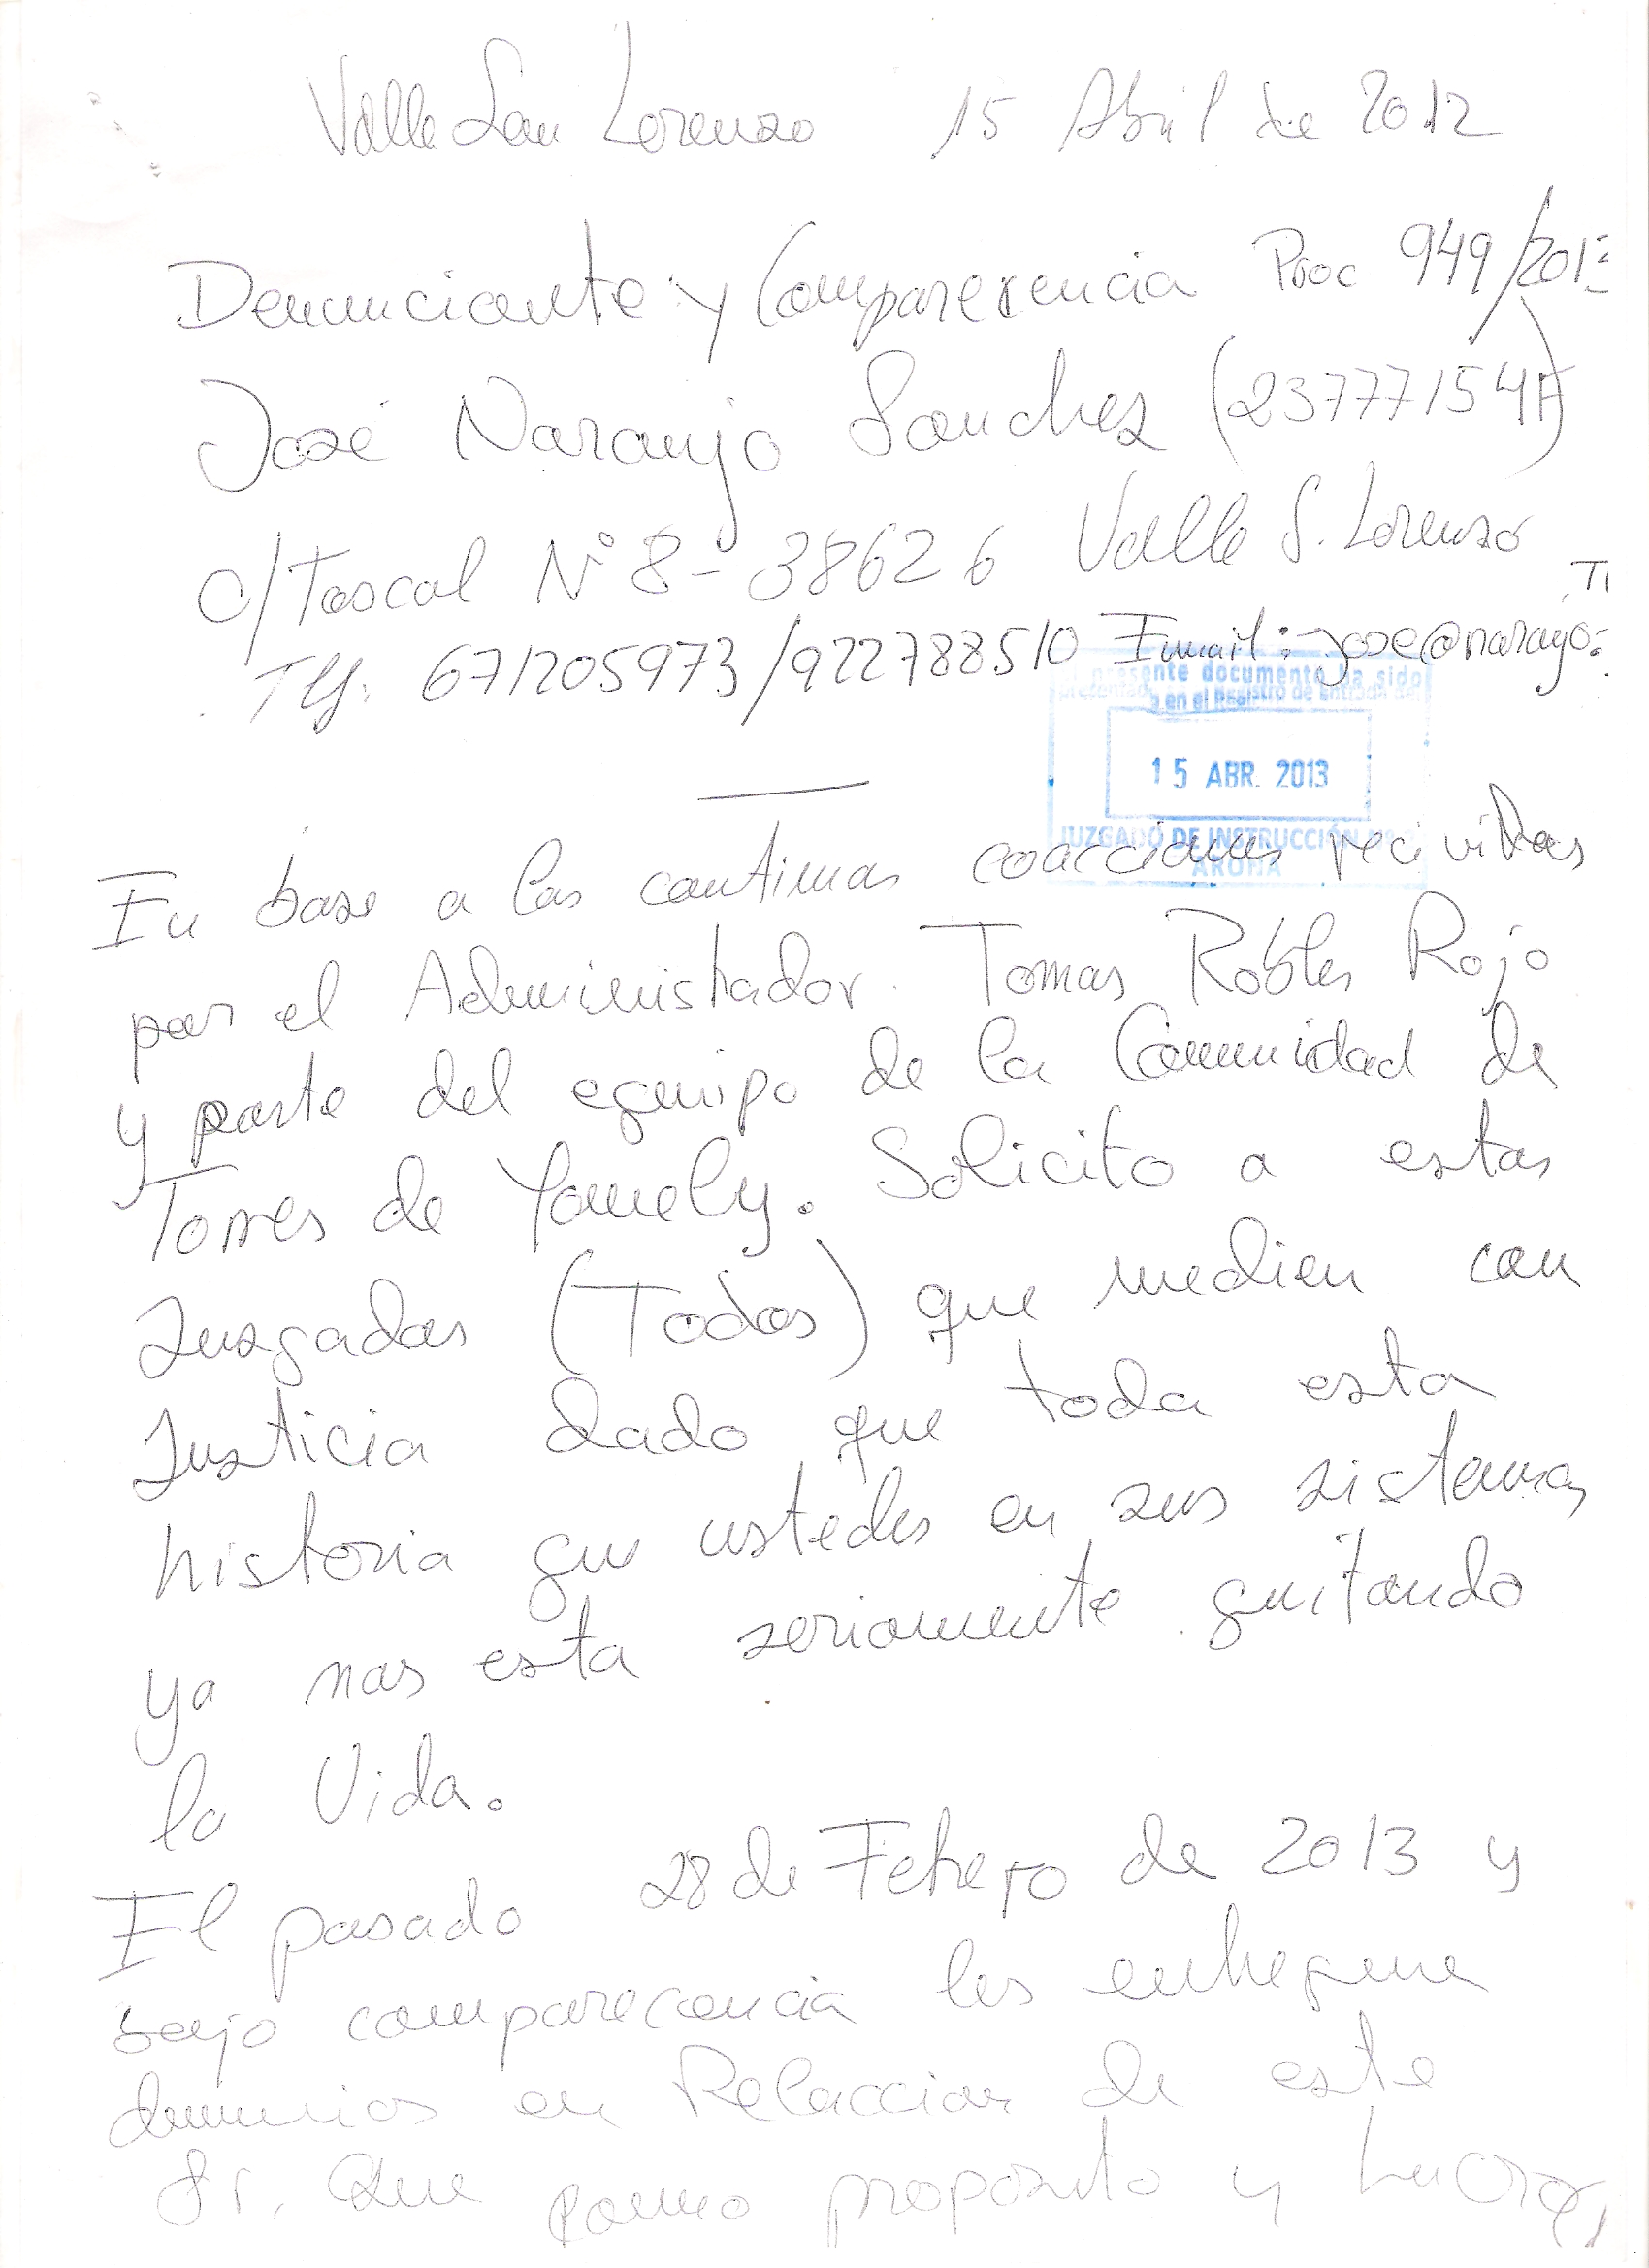 Valle San Lorenzo 15 Abril de 2012
Denunciante y Comparerencia Proc 949/201
José Naranjo Sanchez (23777154A)
C/ Tascal Nº 8 - 38626 Valle S. Lorenzo
Tf
Tlf. 671205973/922788510 Email: jose@naranjo-
presente documento ha sido
presentado en el Registro de Entrada de
15 ABR. 2013
JUZGADO DE INSTRUCCIÓN Nº
ARONA
En base a las continuas coacciones recividas
por el Administrador. Tomas Robles Rojo
y parte del equipo de la Comunidad de
Torres de Yomely. Solicito a estas
Juzgados (Todos) que medien con
Justicia dado que toda esta
historia que ustedes en sus sistemas
ya nos esta seriamente quitando
la Vida.
El pasado 28 de Febrero de 2013 y
bajo comparecencia les entregue
denuncias en Relaccion de este
Sr. Que como proposito y